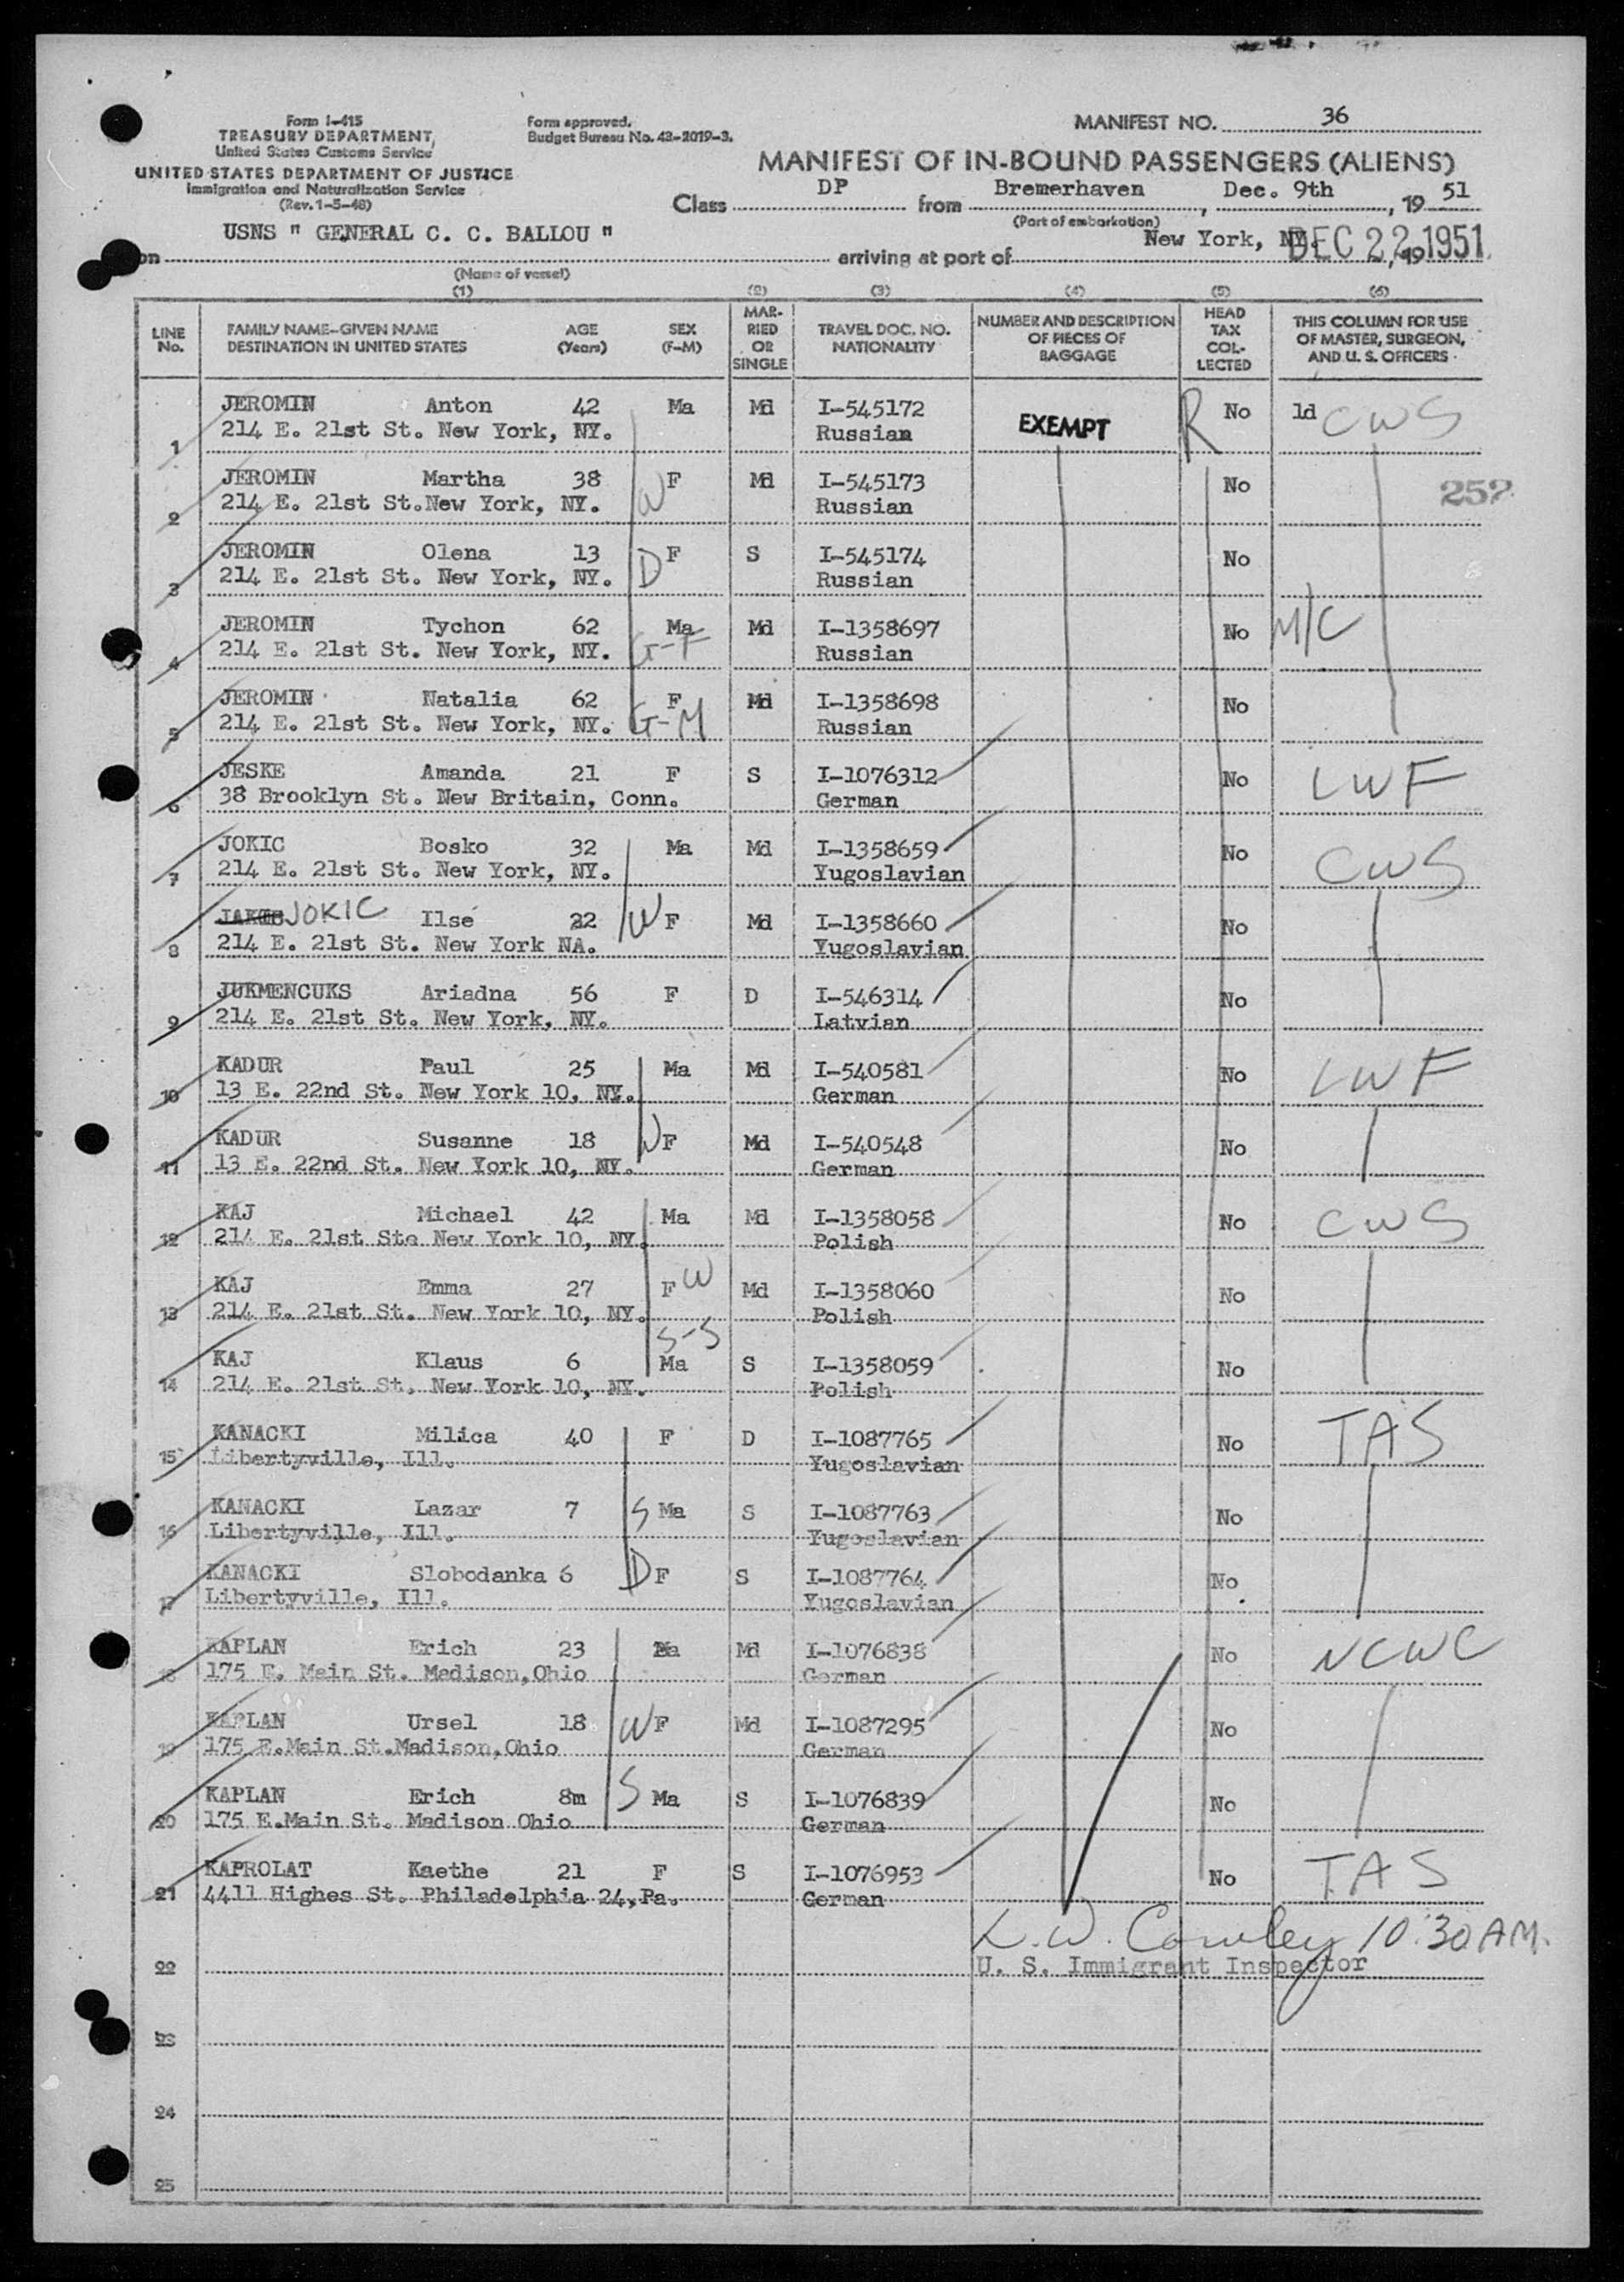 Form I-415
TREASURY DEPARTMENT
United States Customs Service
UNITED STATES DEPARTMENT OF JUSTICE
Immigration and Naturalization Service
(Rev. 1-5-48)
Form approved.
Budget Bureau No. 43-2019-3.
MANIFEST NO. 36
MANIFEST OF IN-BOUND PASSENGERS (ALIENS)
Class DP from Bremerhaven, Dec. 9th, 19 51
(Port of embarkation)
on USNS " GENERAL C. C. BALLOU " arriving at port of New York, NY. DEC 22 1951, 19
(Name of vessel)
(1) (2) (3) (4) (5) (6)
LINE No. FAMILY NAME-GIVEN NAME DESTINATION IN UNITED STATES AGE (Years) SEX (F-M) MARRIED OR SINGLE TRAVEL DOC. NO. NATIONALITY NUMBER AND DESCRIPTION OF PIECES OF BAGGAGE HEAD TAX COLLECTED THIS COLUMN FOR USE OF MASTER, SURGEON, AND U. S. OFFICERS
JEROMIN Anton 42 Ma Md I-545172 EXEMPT R No 1d CWS
1 214 E. 21st St. New York, NY. Russian
JEROMIN Martha 38 W F Md I-545173 No 252
2 214 E. 21st St.New York, NY. Russian
JEROMIN Olena 13 D F S I-545174 No
3 214 E. 21st St. New York, NY. Russian
JEROMIN Tychon 62 Ma Md I-1358697 No M/C
4 214 E. 21st St. New York, NY. G-F Russian
JEROMIN Natalia 62 F Md I-1358698 No
5 214 E. 21st St. New York, NY. G-M Russian
JESKE Amanda 21 F S I-1076312 No LWF
6 38 Brooklyn St. New Britain, Conn. German
JOKIC Bosko 32 Ma Md I-1358659 No CWS
7 214 E. 21st St. New York, NY. Yugoslavian
JOKIC Ilse 22 W F Md I-1358660 No
8 214 E. 21st St. New York NA. Yugoslavian
JUKMENCUKS Ariadna 56 F D I-546314 No
9 214 E. 21st St. New York, NY. Latvian
KADUR Paul 25 Ma Md I-540581 No LWF
10 13 E. 22nd St. New York 10, NY. German
KADUR Susanne 18 W F Md I-540548 No
11 13 E. 22nd St. New York 10, NY. German
KAJ Michael 42 Ma Md I-1358058 No CWS
12 214 E. 21st Ste New York 10, NY. Polish
KAJ Emma 27 F W Md I-1358060 No
13 214 E. 21st St. New York 10, NY. Polish
S-S
KAJ Klaus 6 Ma S I-1358059 No
14 214 E. 21st St. New York 10, NY. Polish
KANACKI Milica 40 F D I-1087765 No TAS
15 Libertyville, Ill. Yugoslavian
KANACKI Lazar 7 S Ma S I-1087763 No
16 Libertyville, Ill. Yugoslavian
KANACKI Slobodanka 6 D F S I-1087764 No
17 Libertyville, Ill. Yugoslavian
KAPLAN Erich 23 Ma Md I-1076838 No NCWC
18 175 E. Main St. Madison,Ohio German
KAPLAN Ursel 18 W F Md I-1087295 No
19 175 E.Main St.Madison,Ohio German
KAPLAN Erich 8m S Ma S I-1076839 No
20 175 E.Main St. Madison Ohio German
KAPROLAT Kaethe 21 F S I-1076953 No TAS
21 4411 Highes St. Philadelphia 24,Pa. German
10:30 AM.
22 U. S. Immigrant Inspector
23
24
25